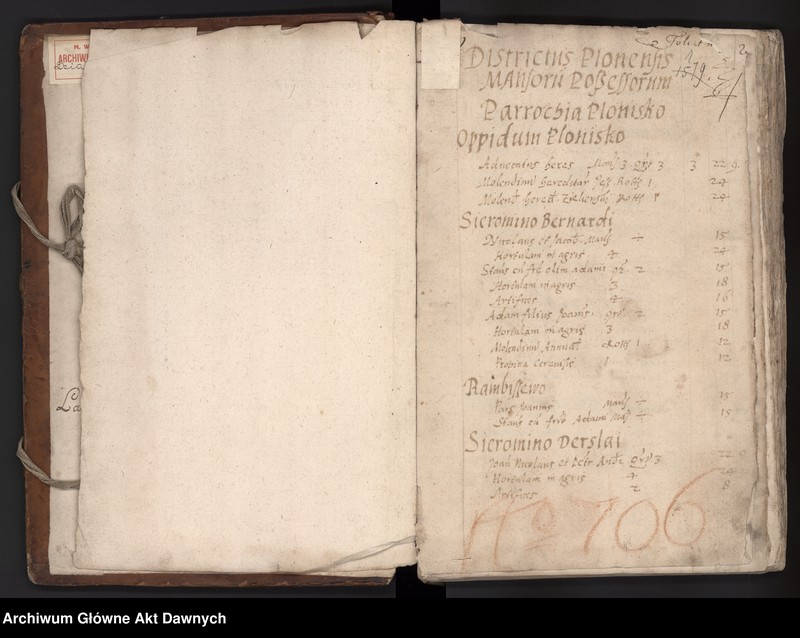 M. W
ARCHIW
La
2
1579
Districtus Plonensis
Mansorū Poßessorum
Parrochia Plonisko
Oppidum Plonisko
Aduocatus heres Mans 3 3 3 22 9
Molendinū hereditar Rotis 1 24
Molend heredit Rotis 1 24
Sieromino Bernardi
Nicolaus et Jacob Mans 15
Hortulam in agris 4 24
Stans cū olim adami 2 15
Hortulam in agris 3 18
Artifices 4 16
Adam filius Joanis 2 15
Hortulam in agris 3 18
Molendinū Annuat Rotis 1 12
Propina cerevisie 1 12
Rambissewo
Pars Joannis Mans 15
Stans cū Adami 15
Sieromino Derslai
Joan Nicolaus et Petr 3 22
Hortulam in agris 4 24
Artifices 2 8
No 706
Archiwum Główne Akt Dawnych